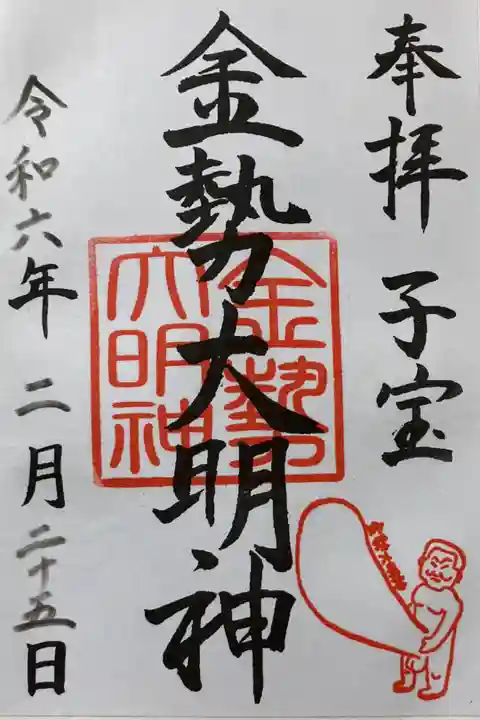 奉拝 子宝
金勢大明神
金勢
大明神
令和六年 二月 二十五日